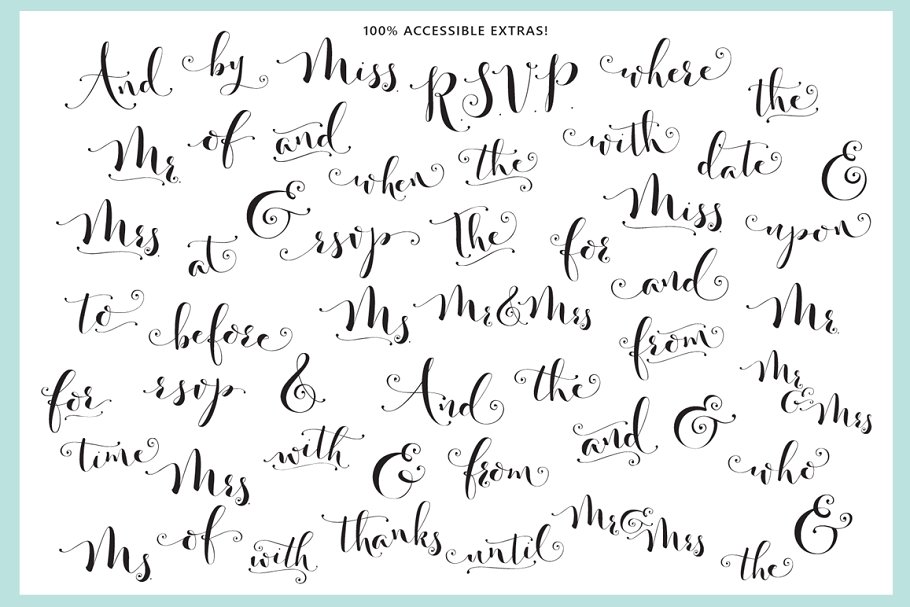 100% ACCESSIBLE EXTRAS!
And by Miss R.S.V.P. where the
Mr. of and when the with date &
Mrs. at & rsvp The for Miss upon
to before Ms. Mr&Mrs and from Mr.
for rsvp & And the and & Mr & Mrs
time Mrs. with & from who
Ms. of with thanks until Mr&Mrs the &